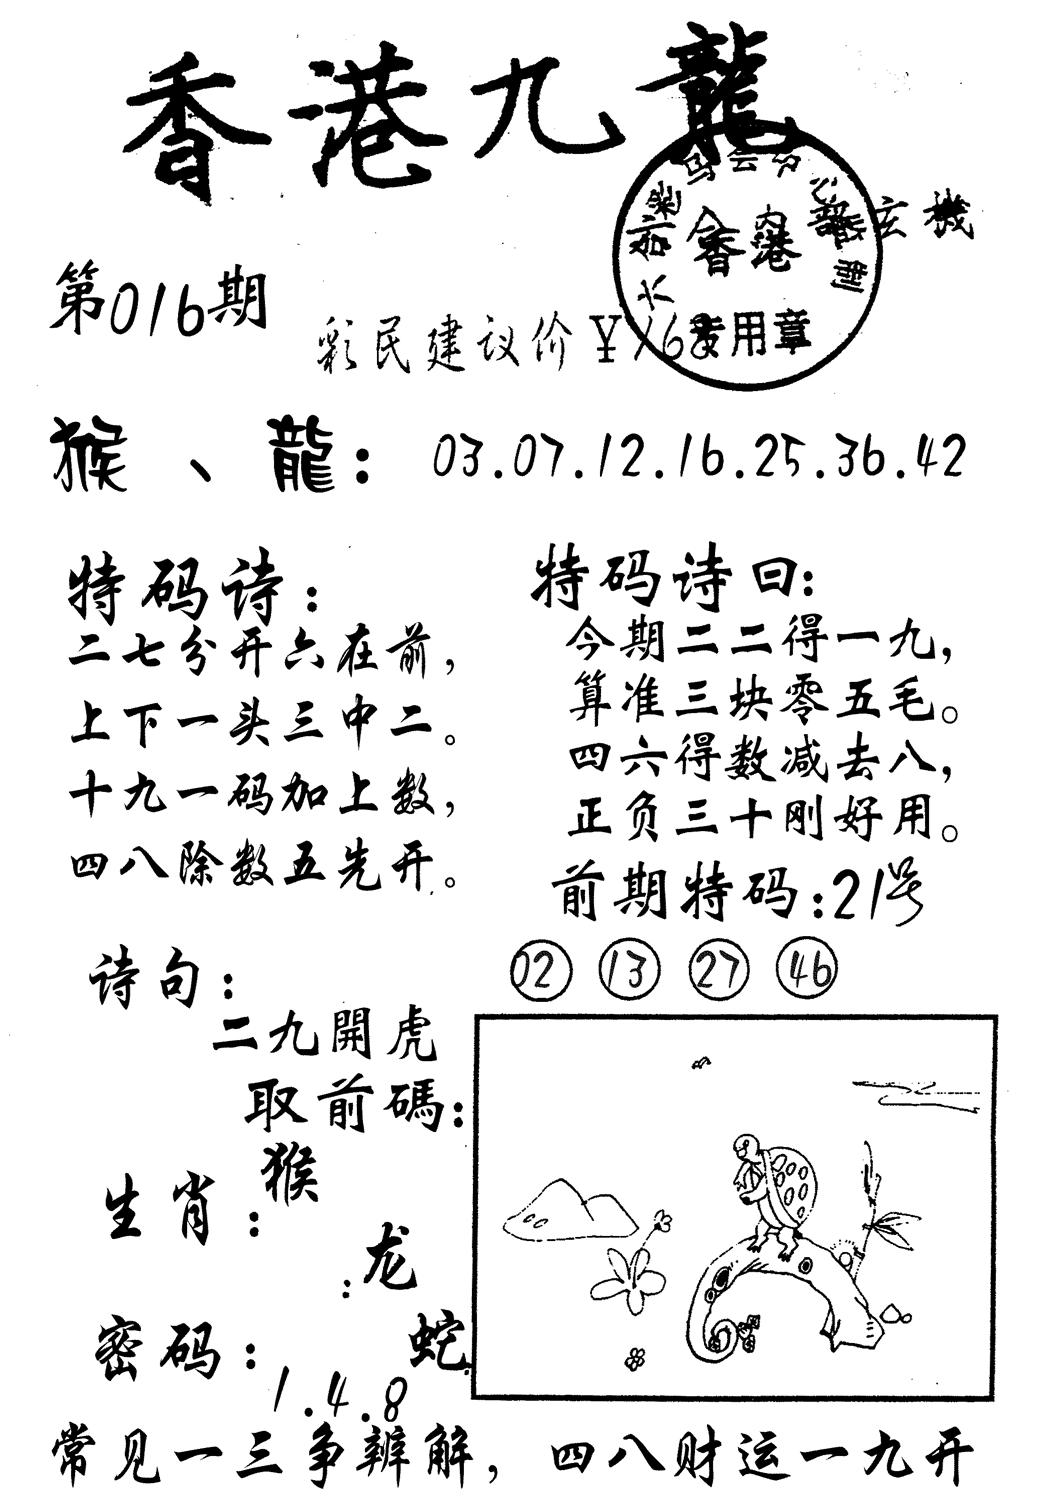 香港九龍
玄機
第016期
香港
彩民建议价￥168
专用章
猴、龍：03.07.12.16.25.36.42
特码诗：
二七分开六在前，
上下一头三中二。
十九一码加上数，
四八除数五先开。
特码诗曰：
今期二二得一九，
算准三块零五毛。
四六得数减去八，
正负三十刚好用。
前期特码：21号
02 13 27 46
诗句：
二九開虎
取前碼：
生肖：猴
：龙
蛇
密码：
1.4.8
常见一三争辨解，四八财运一九开